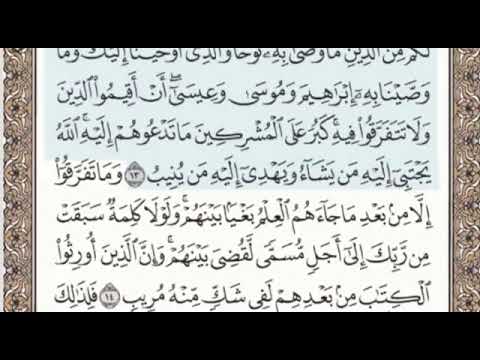 لَكُم مِّنَ ٱلدِّينِ مَا وَصَّىٰ بِهِۦ نُوحًا وَٱلَّذِىٓ أَوْحَيْنَآ إِلَيْكَ وَمَا
وَصَّيْنَا بِهِۦٓ إِبْرَٰهِيمَ وَمُوسَىٰ وَعِيسَىٰٓ ۖ أَنْ أَقِيمُوا۟ ٱلدِّينَ
وَلَا تَتَفَرَّقُوا۟ فِيهِ ۚ كَبُرَ عَلَى ٱلْمُشْرِكِينَ مَا تَدْعُوهُمْ إِلَيْهِ ۚ ٱللَّهُ
يَجْتَبِىٓ إِلَيْهِ مَن يَشَآءُ وَيَهْدِىٓ إِلَيْهِ مَن يُنِيبُ ١٣ وَمَا تَفَرَّقُوٓا۟
إِلَّا مِنۢ بَعْدِ مَا جَآءَهُمُ ٱلْعِلْمُ بَغْيًۢا بَيْنَهُمْ ۚ وَلَوْلَا كَلِمَةٌ سَبَقَتْ
مِن رَّبِّكَ إِلَىٰٓ أَجَلٍ مُّسَمًّى لَّقُضِىَ بَيْنَهُمْ ۚ وَإِنَّ ٱلَّذِينَ أُورِثُوا۟
ٱلْكِتَٰبَ مِنۢ بَعْدِهِمْ لَفِى شَكٍّ مِّنْهُ مُرِيبٍ ١٤ فَلِذَٰلِكَ